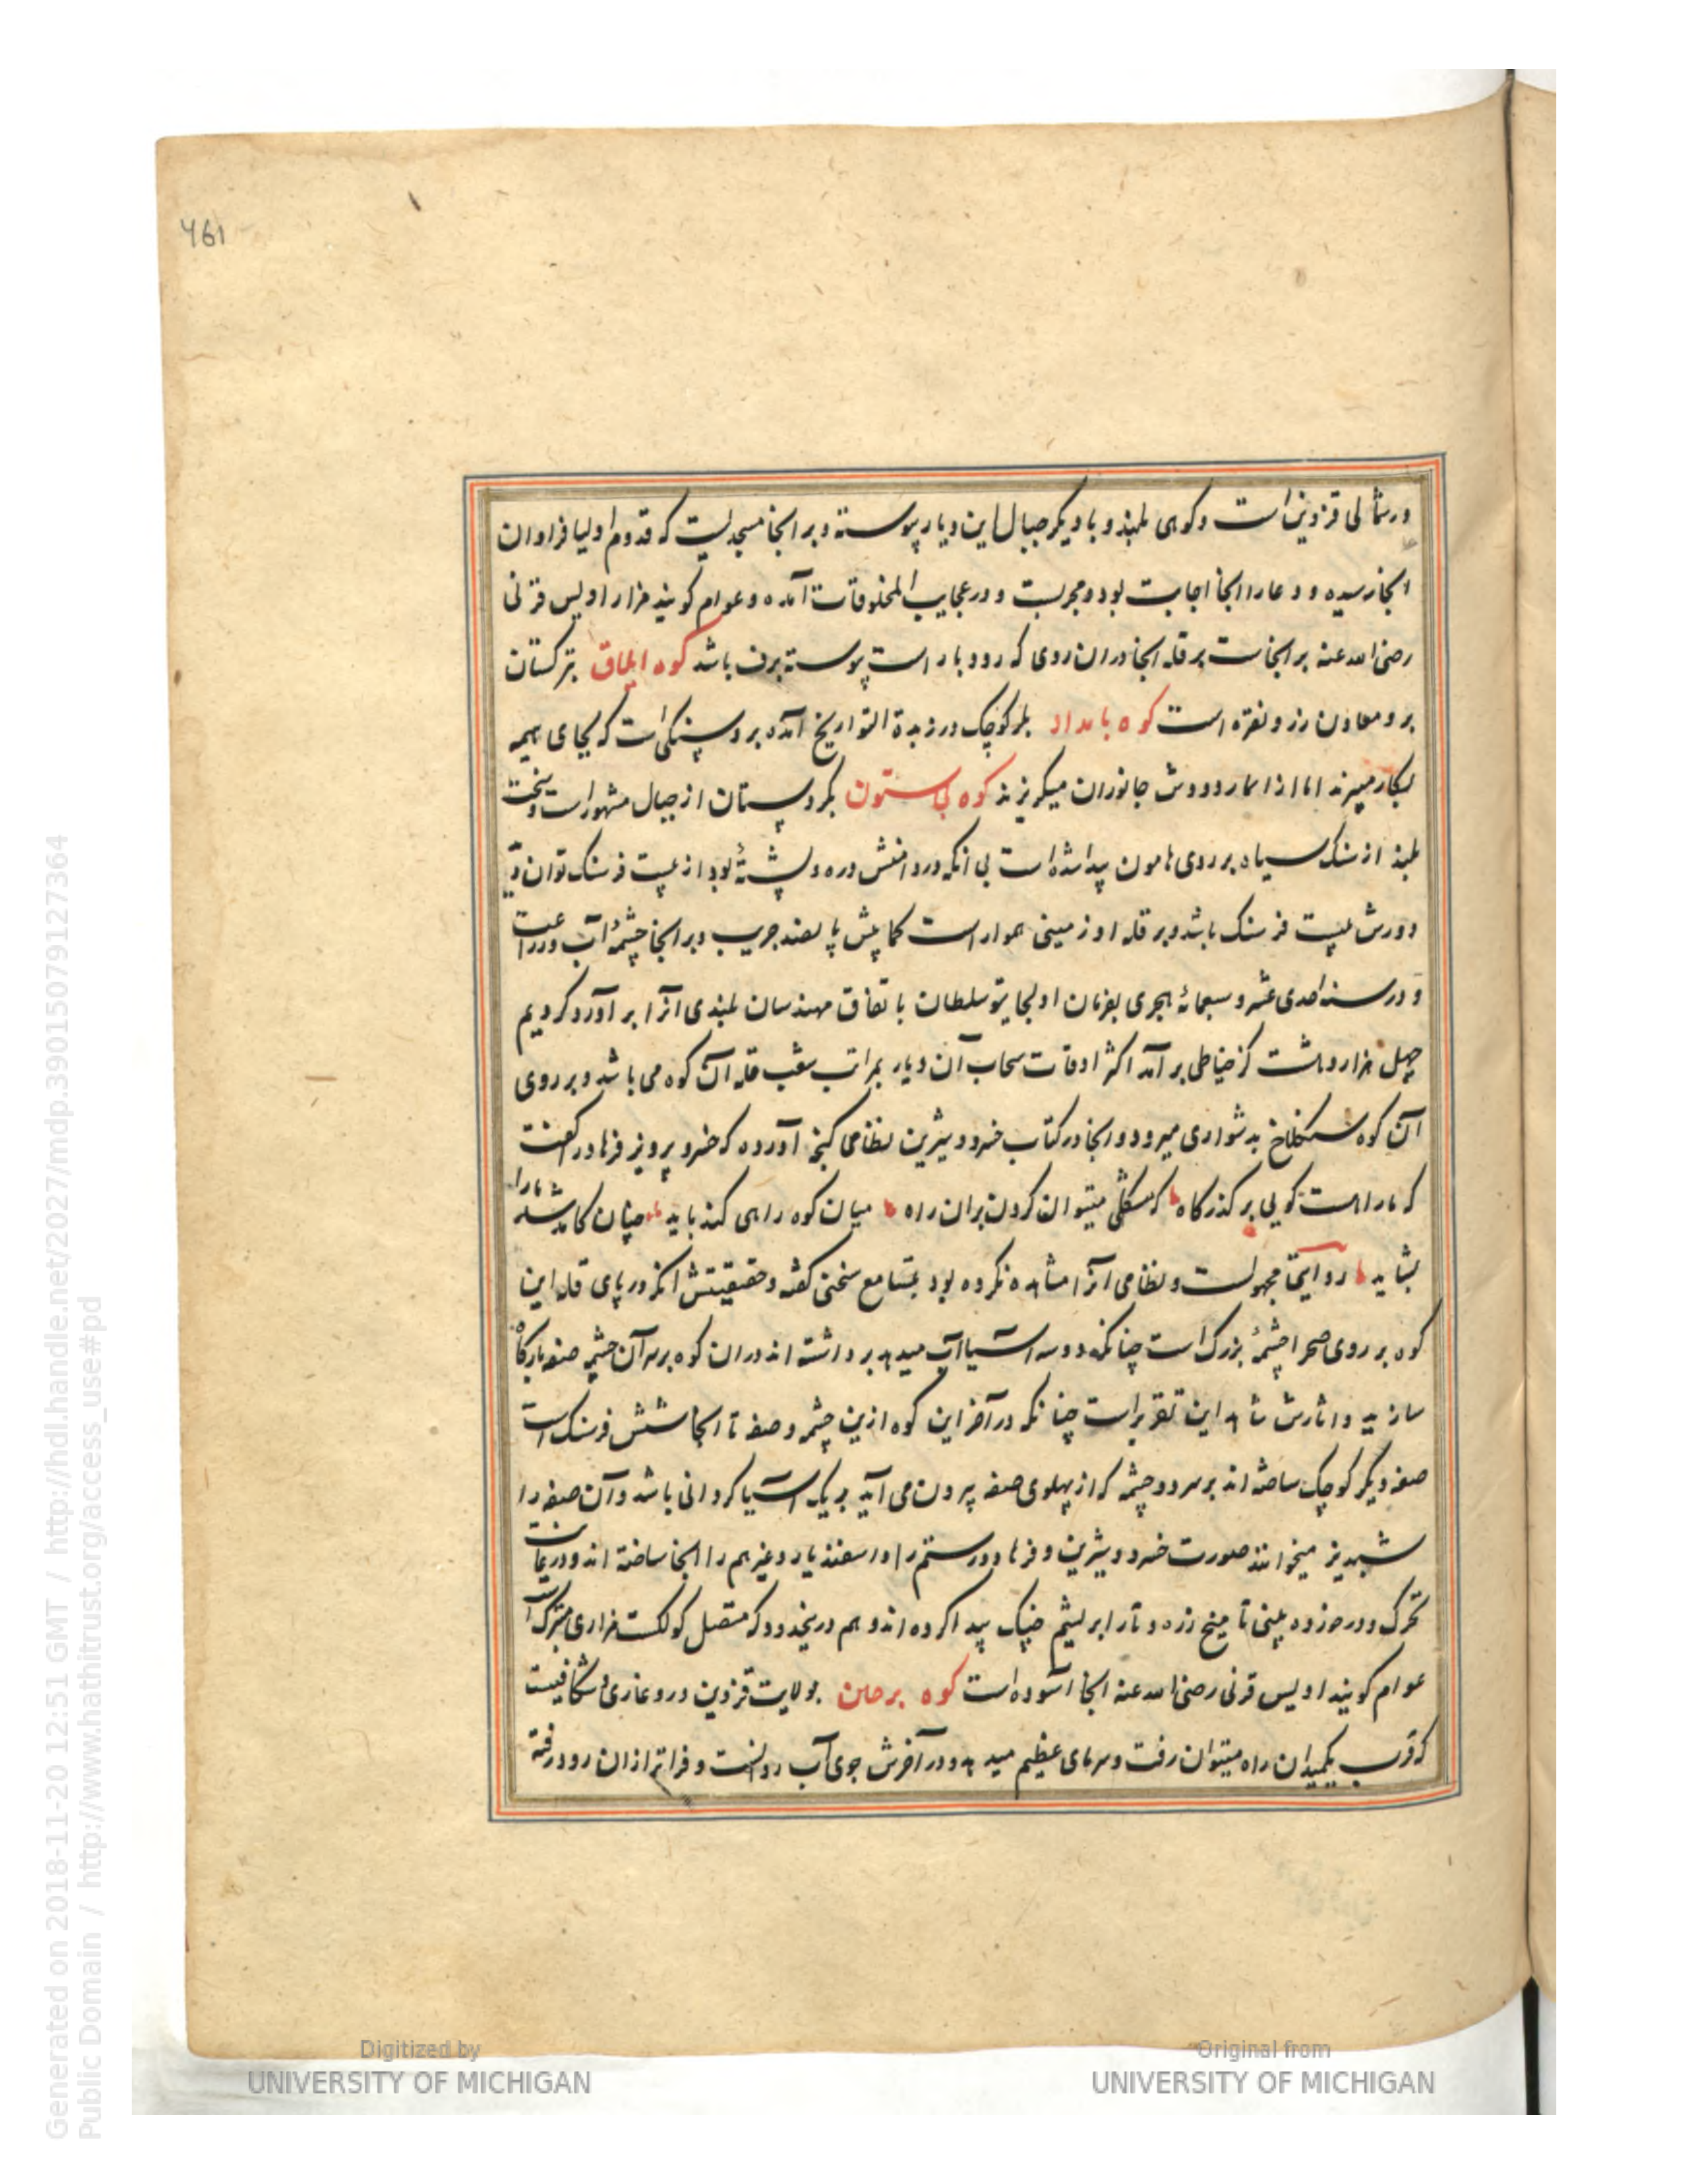 461
در شمالی قزوین است و کوهی بلند و با دیگر جبال این دیار پیوسته و بر انجا مسجدیست که قدوم اولیا فراوان
انجا رسیده و دعا را انجا اجابت بود و مجربست و در عجایب المخلوقات آمده و عوام کویند مزار اویس قرنی
رضی الله عنه بر انجاست بر قله انجا در ان روی که رودبار است پیوسته برف باشد کوه ایلاق بترکستان
برو معادن زر و نقره است کوه بامداد بلر کوچک در زبدة التواریخ آمده برو سنکی است که بجای هیمه
بکار میبرند اما از دودش جانوران میکریزند کوه بی ستون بکردستان از جبال مشهور است و سخت
بلند از سنک سیاه بر روی هامون پیدا شده است بی انکه در دامنش دره و پشتهٔ بود از بیست فرسنک توان دید
دورش بیست فرسنک باشد و بر قله او زمینی هموار است کمابیش پانصد جریب و بر انجا چشمهٔ آب و زراعت
و در سنه احدی عشر و سبعمائهٔ هجری بفرمان اولجایتو سلطان باتفاق مهندسان بلندی آنرا برآورد کردیم
چهل هزار و هشت کز خیاطی برآمد اکثر اوقات سحاب آن دیار بمراتب شیب قله آن کوه می باشد و بر روی
آن کوه سنکلاخ بدشواری میرود و انجا در کتاب خسرو و شیرین نظامی کنجه آورده که خسرو پرویز فرهاد را کفت
که ما را هست کویی بر کذرکاه که مشکل میتوان کردن بران راه میان کوه راهی کند باید چنان کامد شد ما را
بشاید روایتی مجهولست و نظامی انرا مشاهده نکرده بود بتسامع سخنی کفته و حقیقتش انکه در پای قله این
کوه بر روی صحرا چشمهٔ بزرک است چنانکه دو سه آسیا آب میدهد برداشته اند دران کوه بر سر آن چشمه صفه بارکاه
سازند و اثارش شاهد این تقریر است چنانکه در آخر این کوه ازین چشمه و صفه تا انجا شش فرسنک است
صفه دیکر کوچک ساخته اند بر سر دو چشمه که از پهلوی صفه بیرون می آید هر یک آسیا کردانی باشد و آن صفه را
شبدیز میخوانند صورت خسرو و شیرین و فرهاد و رستم را و اسفندیار و غیرهم را انجا ساخته اند و در غایت
تحرک و در خرده بینی تا میخ زره و تار ابریشم چنک پیدا کرده اند و هم درینحدود که متصل کولکست مزاری متبرک است
عوام کویند اویس قرنی رضی الله عنه انجا آسوده است کوه برحین بولایت قزوین درو غاری و شکافیست
که قرب یکمیدان راه میتوان رفت و سرمای عظیم میدهد و در آخرش جوی آب روانست و فراتر از ان رود رفته
Digitized by
UNIVERSITY OF MICHIGAN
Original from
UNIVERSITY OF MICHIGAN
Generated on 2018-11-20 12:51 GMT / http://hdl.handle.net/2027/mdp.39015079127364
Public Domain / http://www.hathitrust.org/access_use#pd